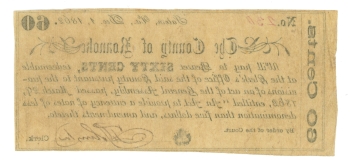 No.
Salem, Va., Dec. 1, 1862.
60
The County of Roanoke
Will pay to bearer SIXTY CENTS,
at the Clerk's Office of the said County, pursuant to the pro-
visions of an act of the General Assembly, passed March
1862, entitled "An Act to provide a currency of notes of less
denomination than five dollars," and amendments thereto.
By order of the Court.
Clerk.
60 Cents.